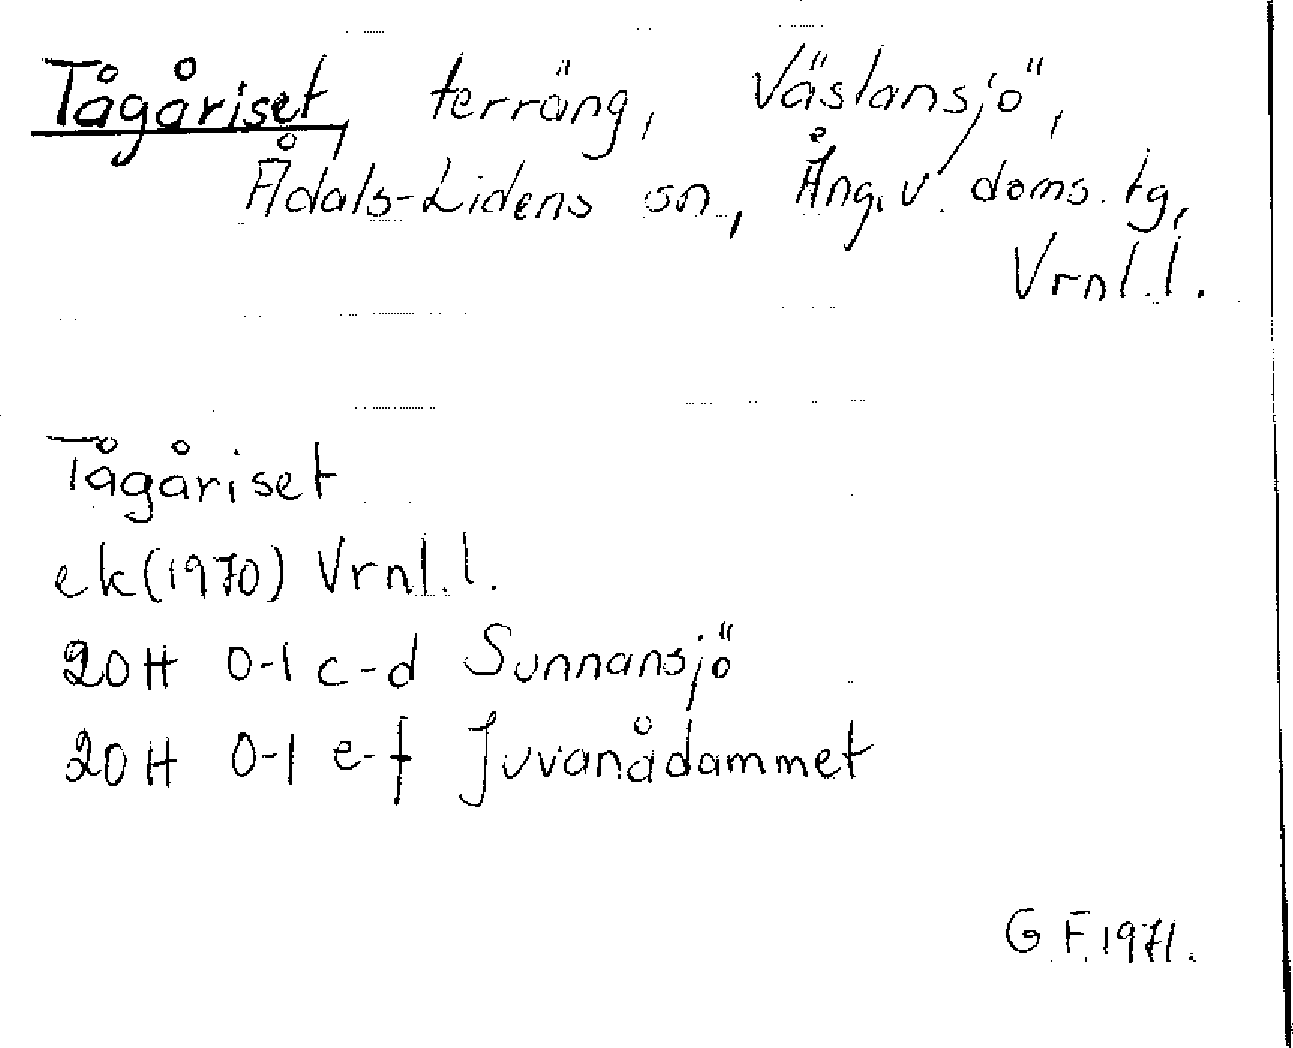 Tågåriset, terräng, Västansjö,
Ådals-Lidens sn, Ång. v. doms. tg,
Vrnl. l.
Tågåriset
ek(1970) Vrnl. l.
20H 0-1 c-d Sunnansjö
20H 0-1 e-f Juvanådammet
G. F. 1971.